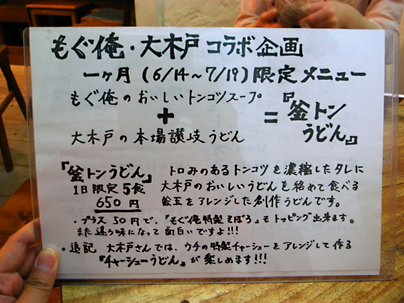 もぐ俺・大木戸コラボ企画
一ヶ月(6/14~7/19)限定メニュー
もぐ俺のおいしいトンコツスープ
+
大木戸の本場讃岐うどん
=『釜トンうどん』
『釜トンうどん』
1日限定5食
650円
トロみのあるトンコツを濃縮したタレに
大木戸のおいしいうどんを絡めて食べる
釜玉をアレンジした創作うどんです。
・プラス50円で、「もぐ俺特製そぼろ」もトッピング出来ます。
また違う味になって面白いですよ!!!
・追記 大木戸さんでは、ウチの特製チャーシューをアレンジして作る
『チャーシューうどん』が楽しめます!!!